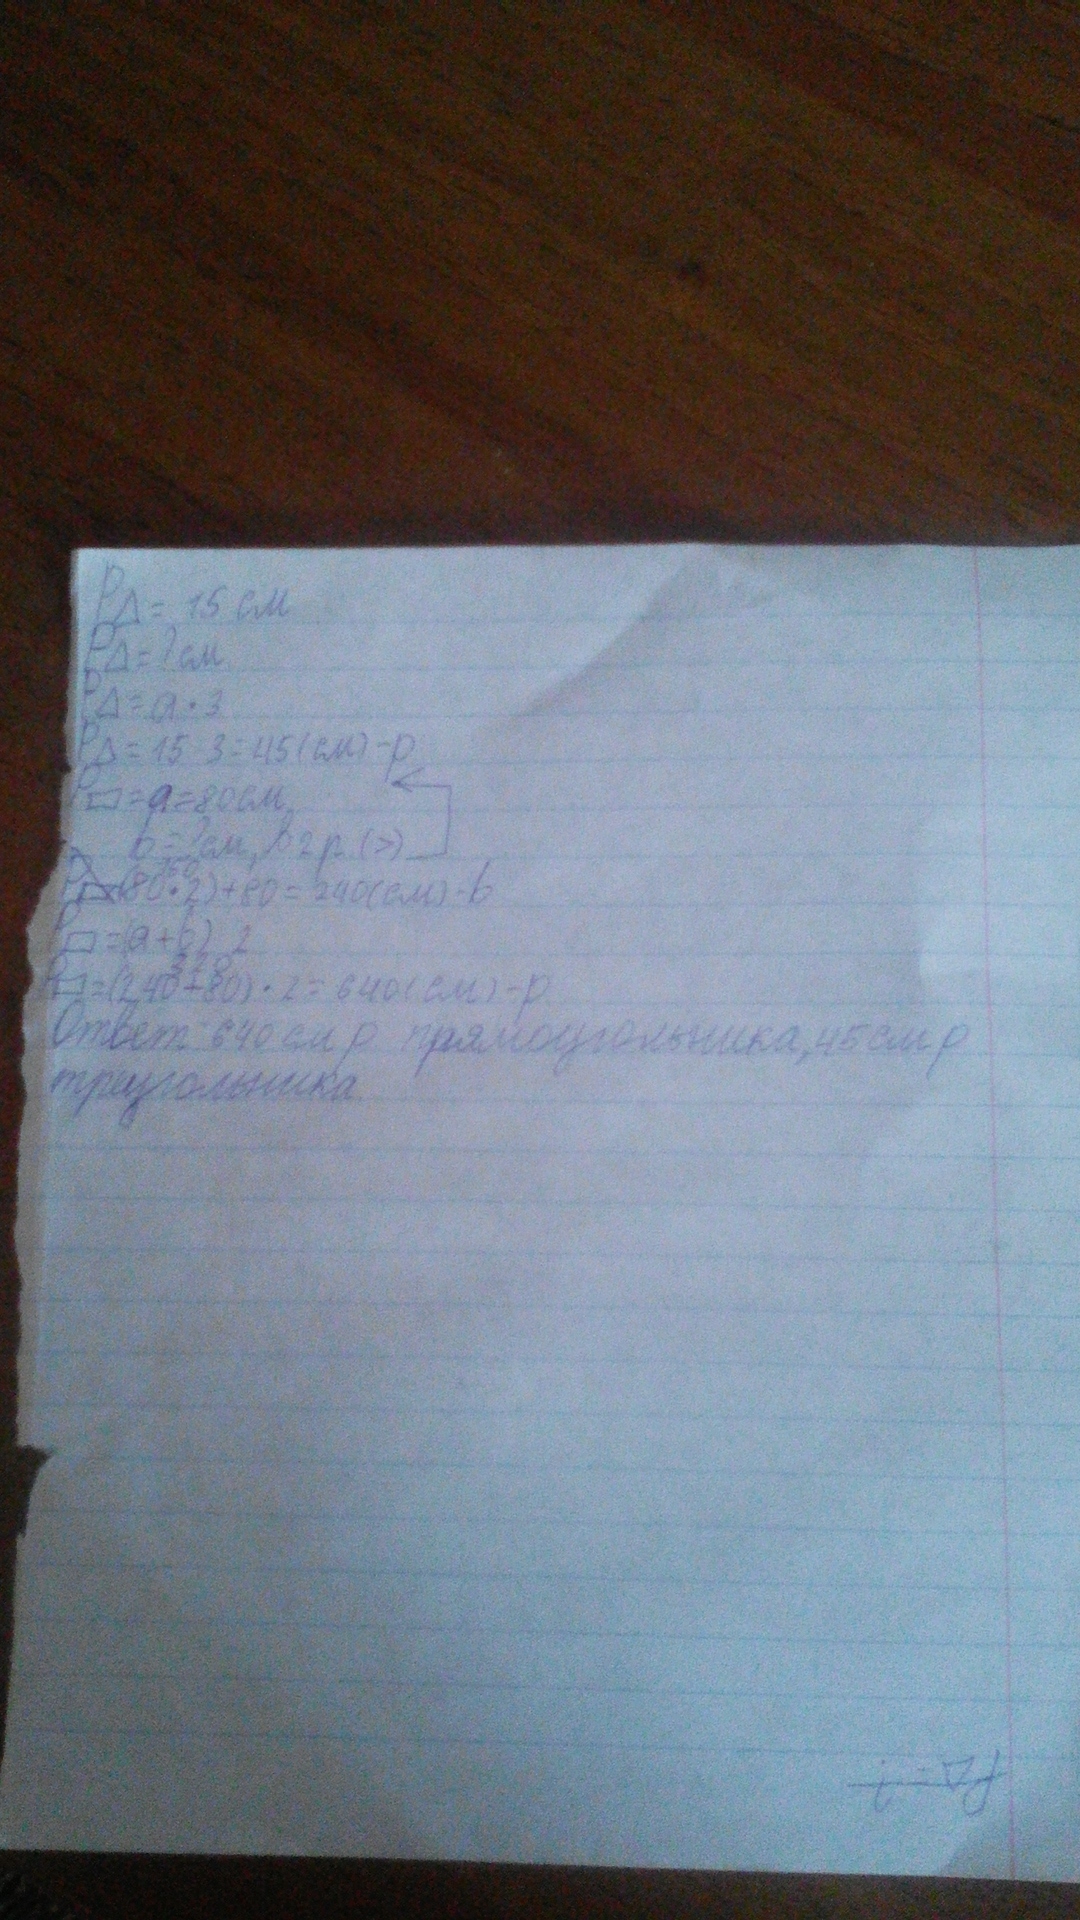 P△ = 15 см
P△ = ? см
P△ = a · 3
P△ = 15 · 3 = 45 (см) - p
P▭ = a = 80 см
b = ? см, в 2 р. (>)
160
(80 · 2) + 80 = 240 (см) - b
P▭ = (a + b) · 2
320
P▭ = (240 + 80) · 2 = 640 (см) - p
Ответ: 640 см p прямоугольника, 45 см p
треугольника.